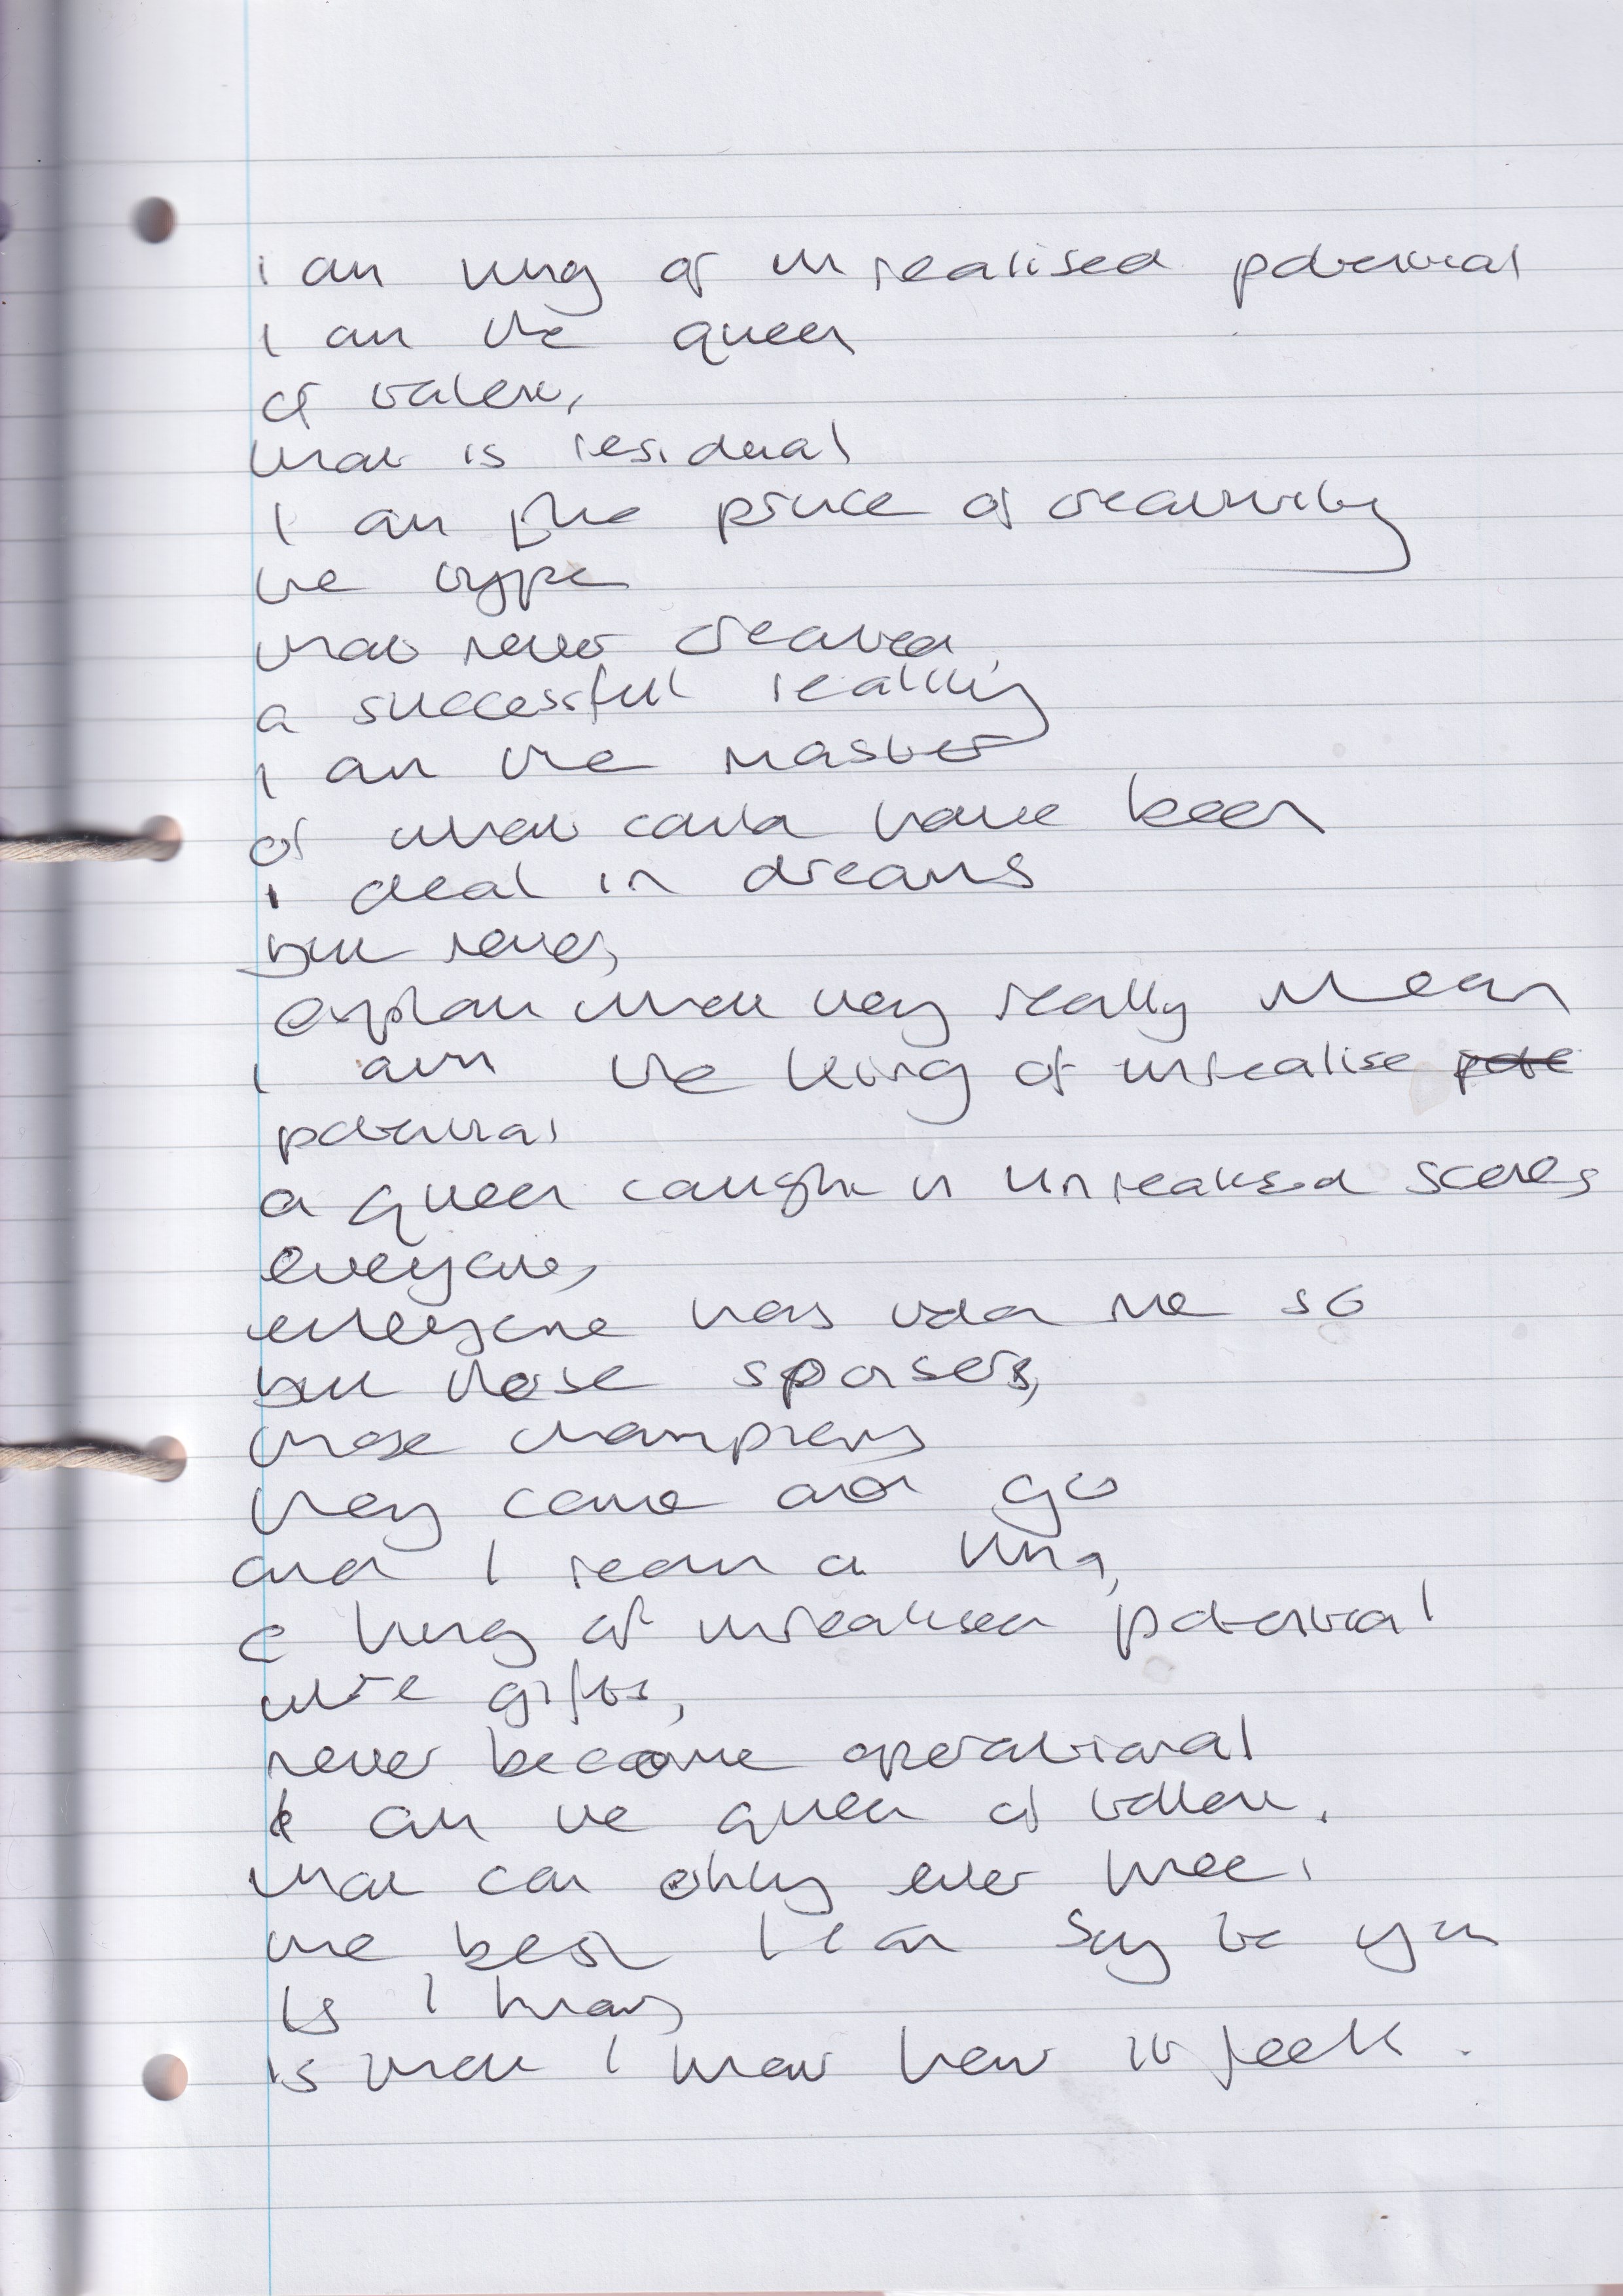 i am king of unrealised potential
I am the queen
of talent,
that is residual
I am the prince of creativity
the type
that never created,
a successful reality
I am the master
of what could have been
I deal in dreams
but never,
explain what they really mean
I am the king of unrealise pote
potential
a queen caught in unrealised scenes
everyone,
everyone has told me so
but those sponsers,
those champions
they come and go
and I remain a king,
a king of unrealised potential
whose gifts,
never become operational
I am the queen of talent,
that can only ever
the best I can say to you
is I know,
is that I know how it feels.